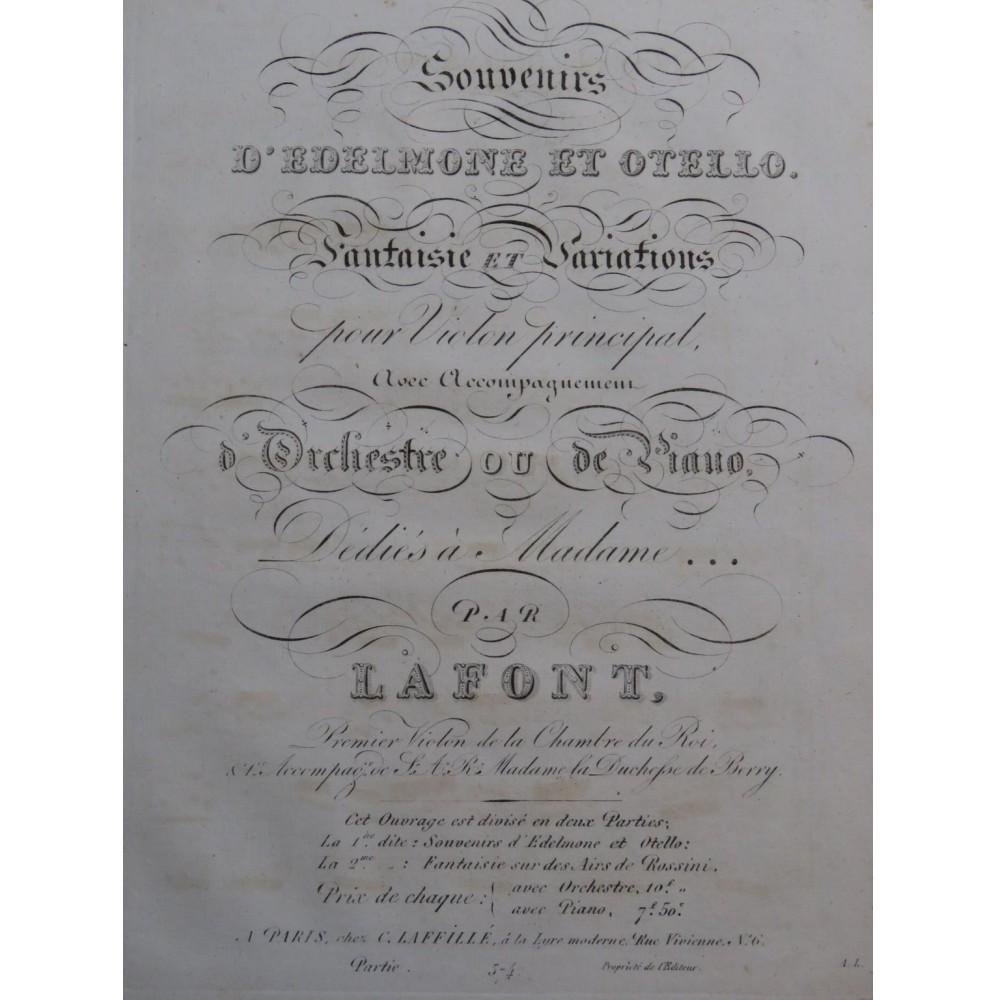 Souvenirs
D'EDELMONE ET OTELLO.
Fantaisie ET Variations
pour Violon principal,
Avec Accompagnement
d'Orchestre OU de Piano,
Dédiés à Madame ...
PAR
LAFONT,
Premier Violon de la Chambre du Roi,
& 1er Accompagr. de S. A. R. Madame la Duchesse de Berry.
Cet Ouvrage est divisé en deux Parties;
La 1ere. dite: Souvenirs d'Edelmone et Otello:
La 2me. „ : Fantaisie sur des Airs de Rossini.
Prix de chaque: { avec Orchestre, 10f. „
avec Piano, 7f. 50c.
A PARIS, chez C. LAFFILLÉ, à la Lyre moderne, Rue Vivienne, No. 6.
Partie. 3-4 Propriété de l'Editeur. A.L.